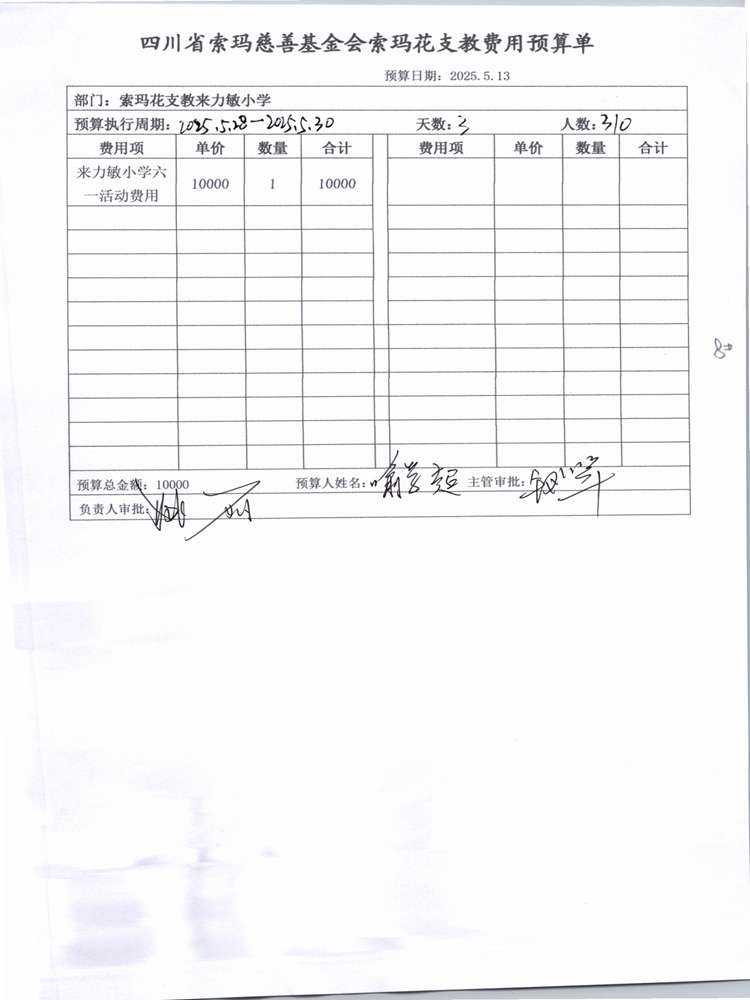 四川省索玛慈善基金会索玛花支教费用预算单
预算日期：2025.5.13
部门：索玛花支教来力敏小学
预算执行周期：2025.5.28—2025.5.30 天数：3 人数：310
费用项 单价 数量 合计 费用项 单价 数量 合计
来力敏小学六
一活动费用 10000 1 10000
预算总金额：10000 预算人姓名： 主管审批：
负责人审批：